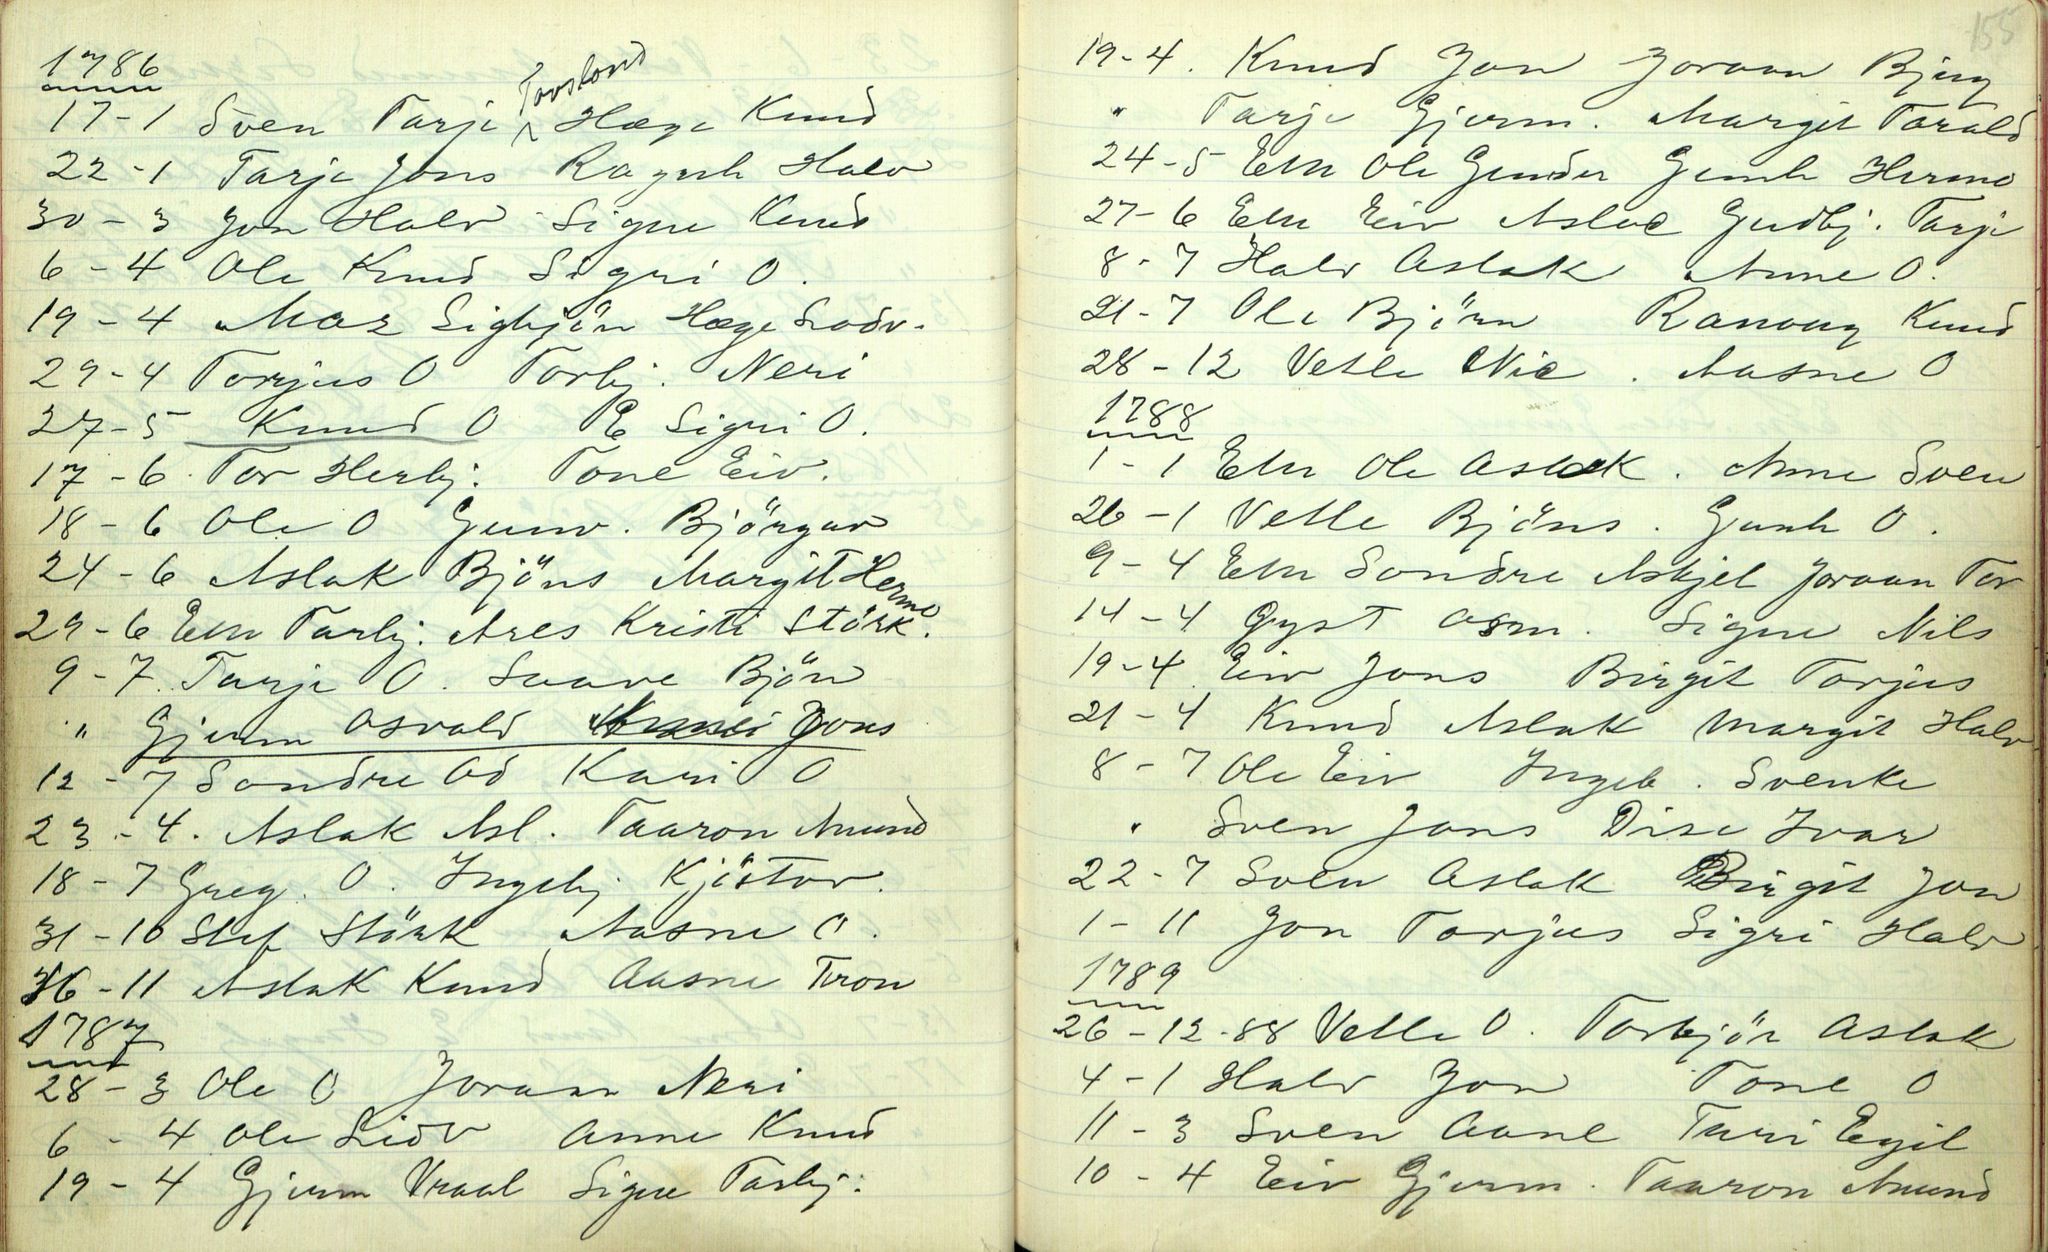 1786
Tovsland
17-1 Sven Tarje Hæge Knud
22-1 Tarje Jons Ragnh Halv
30-3 Jon Halv Signe Knud
6-4 Ole Knud Sigri O.
19-4 Sigbjön Hæge Lodv.
29-4 Torjus O Torbj. Neri
27-5 Knud O E Sigri O.
17-6 Tor Herbj. Tone Eiv.
18-6 Ole O Gunv. Björguv
24-6 Aslak Bjöns Margit Hermo
29-6 Em Tarbj. Ares Kristi Störk.
9-7 Tarje O. Saave Bjön
" Gjerm Osvald Jons
12-7 Sondre Od Kari O
23-4. Aslak Asl. Taaron Amund
18-7 Greg. O. Ingebj Kjöstov.
31-10 Stef Störk Aasne O.
26-11 Aslak Knud Aasne Tron
1787
28-3 Ole O Joraan Neri
6-4 Ole Lidv Anne Knud
19-4 Gjerm Vraal Signe Tarbj.
155
19-4. Knud Jon Joraan Bjug
" Tarje Gjerm. Margit Tarald
24-5 Em Ole Gunder Gunh Hermo
27-6 Em Eiv Aslac Gudbj. Tarje
8-7 Halv Aslak Anne O.
21-7 Ole Björn Ranoug Knud
28-12 Vetle Nic. Aasne O
1788
1-1 Em Ole Aslak. Anne Sven
26-1 Vetle Bjöns. Gunh O.
9-4 Em Sondre Askjel Joraan Tor
14-4 Gjyst Asm. Signe Nils
19-4 Eiv Jons Birgit Torjus
21-4 Knud Aslak Margit Halv
8-7 Ole Eiv Ingeb. Svenke
" Sven Jons Dise Ivar
22-7 Sven Aslak Birgit Jon
1-11 Jon Torjus Sigri Halv
1789
26-12-88 Vetle O. Torbjör Aslak
4-1 Halv Jon Tone O
11-3 Sven Aanl Turi Egil
10-4 Eiv Gjerm. Taaron Amund